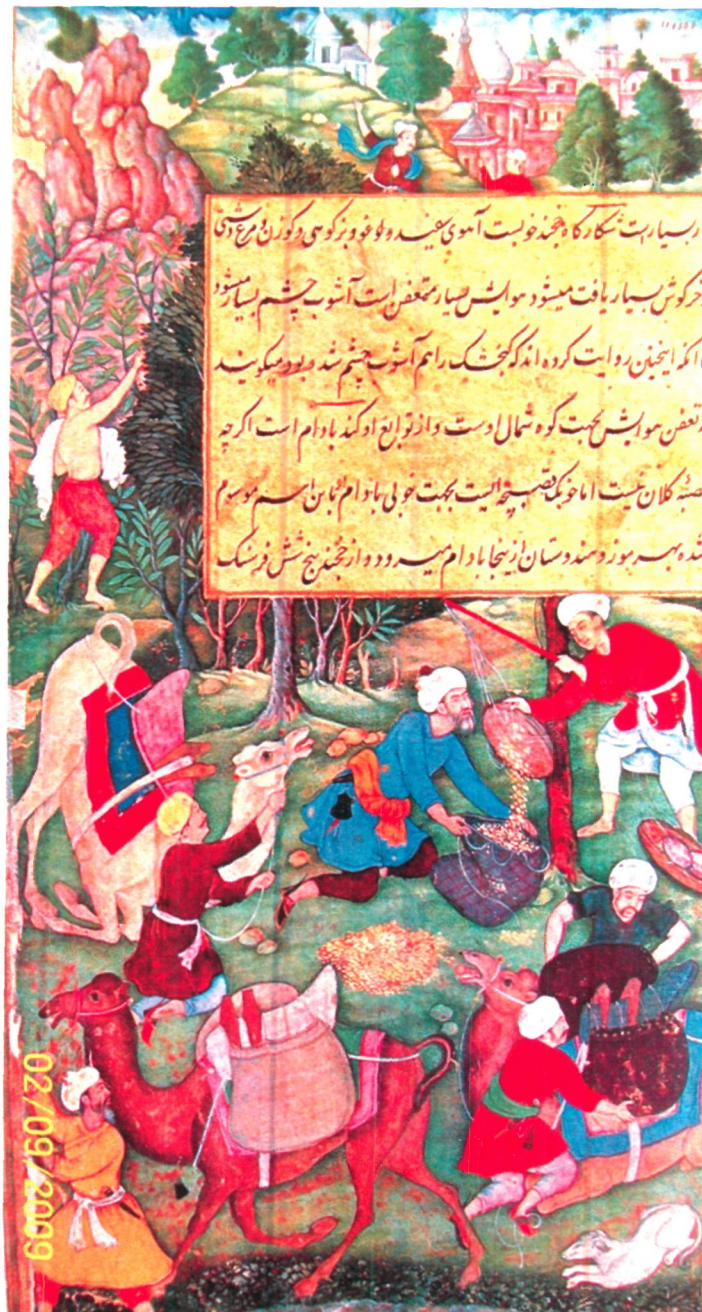 ر بسیار است شکارگاه خجند خوبست آهوی سفید و بز کوهی و گوزن و مرغ دشتی
خرگوش بسیار یافت میشود هوایش بسیار متعفن است آشوب چشم بسیار میشود
انکه اینچنین روایت کرده اند که کنجشک را هم آشوب چشم شده بود میکویند
تعفن هوایش بجهت کوه شمال اوست و از توابع او کند بادام است اگرچه
قصبه کلان نیست اما خوبک قصبچه ایست بجهت خوبی بادام باین اسم موسوم
شده بهرموز و هندوستان ازینجا بادام میرود و از خجند پنج شش فرسنک
02/09/2009